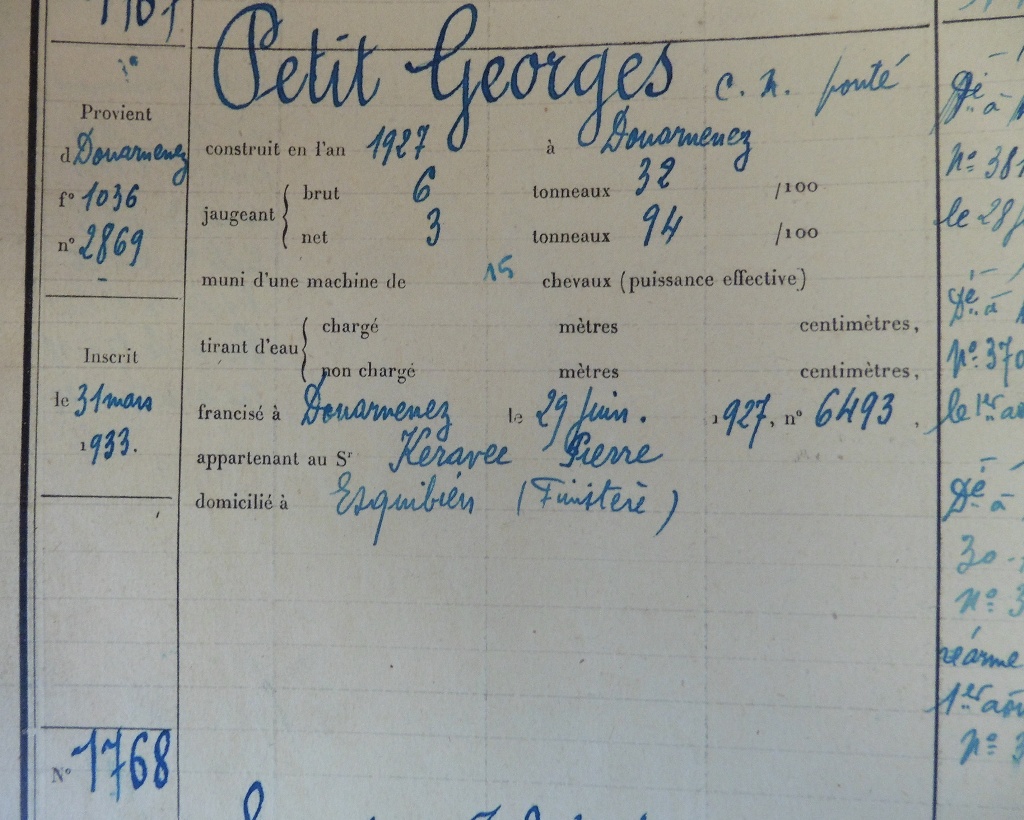 Petit Georges c. n. ponté
Provient
d Douarnenez
f° 1036
n° 2869
construit en l'an 1927 à Douarnenez
jaugeant { brut 6 tonneaux 32 /100
net 3 tonneaux 94 /100
muni d'une machine de 15 chevaux (puissance effective)
tirant d'eau { chargé mètres centimètres,
non chargé mètres centimètres,
Inscrit
le 31 mars
1933.
francisé à Douarnenez le 29 Juin. 1927, n° 6493,
appartenant au Sr Keravec Pierre
domicilié à Esquibien (Finistère)
N° 1768
Dé à
n° 381
le 28
Dé à
n° 370
le 1er
Dé à
30
n° 3
réarme
1er août
n° 3